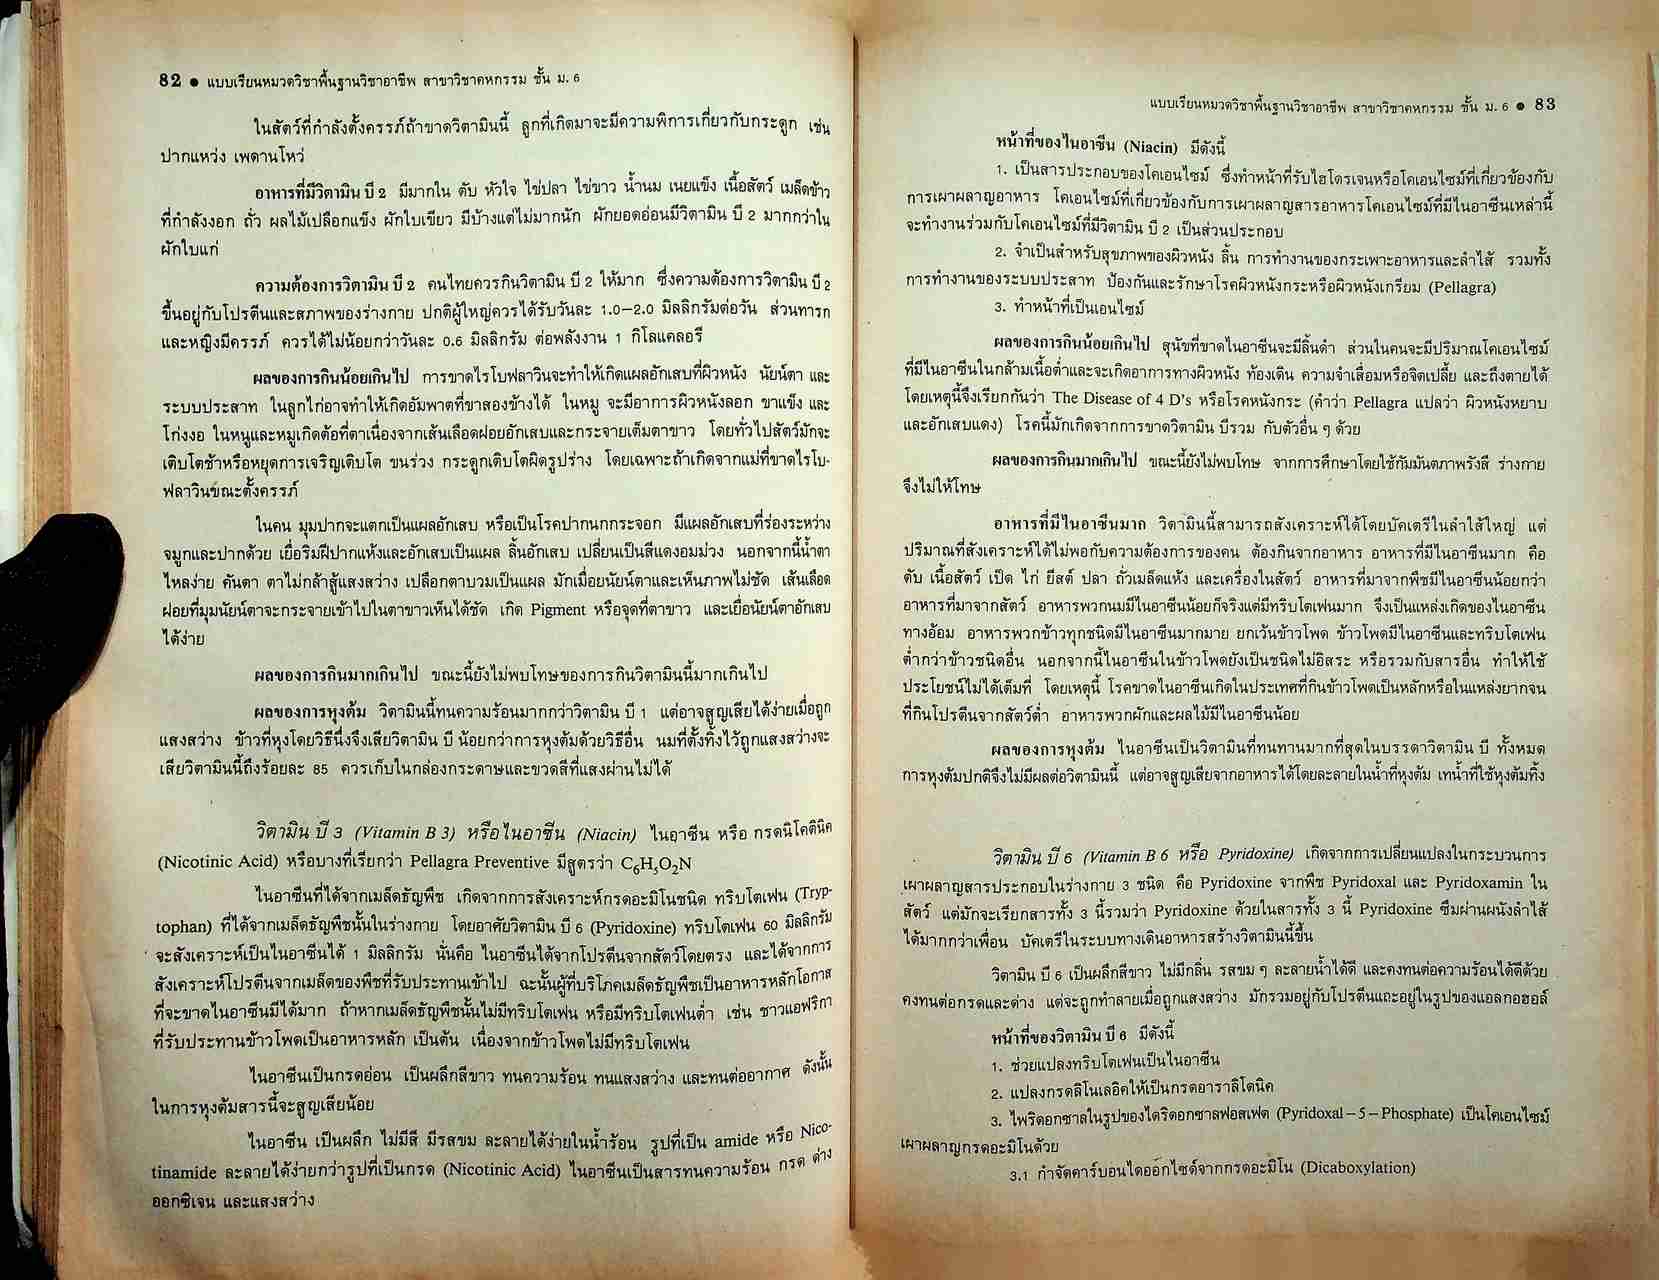 82 ● แบบเรียนหมวดวิชาพื้นฐานวิชาอาชีพ สาขาวิชาคหกรรม ชั้น ม. 6
ในสัตว์ที่กำลังตั้งครรภ์ถ้าขาดวิตามินนี้ ลูกที่เกิดมาจะมีความพิการเกี่ยวกับกระดูก เช่น
ปากแหว่ง เพดานโหว่
อาหารที่มีวิตามิน บี 2 มีมากใน ตับ หัวใจ ไข่ปลา ไข่ขาว น้ำนม เนยแข็ง เนื้อสัตว์ เมล็ดข้าว
ที่กำลังงอก ถั่ว ผลไม้เปลือกแข็ง ผักใบเขียว มีบ้างแต่ไม่มากนัก ผักยอดอ่อนมีวิตามิน บี 2 มากกว่าใน
ผักใบแก่
ความต้องการวิตามิน บี 2 คนไทยควรกินวิตามิน บี 2 ให้มาก ซึ่งความต้องการวิตามิน บี 2
ขึ้นอยู่กับโปรตีนและสภาพของร่างกาย ปกติผู้ใหญ่ควรได้รับวันละ 1.0–2.0 มิลลิกรัมต่อวัน ส่วนทารก
และหญิงมีครรภ์ ควรได้ไม่น้อยกว่าวันละ 0.6 มิลลิกรัม ต่อพลังงาน 1 กิโลแคลอรี
ผลของการกินน้อยเกินไป การขาดไรโบฟลาวินจะทำให้เกิดแผลอักเสบที่ผิวหนัง นัยน์ตา และ
ระบบประสาท ในลูกไก่อาจทำให้เกิดอัมพาตที่ขาสองข้างได้ ในหมู จะมีอาการผิวหนังลอก ขาแข็ง และ
โก่งงอ ในหนูและหมูเกิดต้อที่ตาเนื่องจากเส้นเลือดฝอยอักเสบและกระจายเต็มตาขาว โดยทั่วไปสัตว์มักจะ
เติบโตช้าหรือหยุดการเจริญเติบโต ขนร่วง กระดูกเติบโตผิดรูปร่าง โดยเฉพาะถ้าเกิดจากแม่ที่ขาดไรโบ-
ฟลาวินขณะตั้งครรภ์
ในคน มุมปากจะแตกเป็นแผลอักเสบ หรือเป็นโรคปากนกกระจอก มีแผลอักเสบที่ร่องระหว่าง
จมูกและปากด้วย เยื่อริมฝีปากแห้งและอักเสบเป็นแผล ลิ้นอักเสบ เปลี่ยนเป็นสีแดงอมม่วง นอกจากนี้น้ำตา
ไหลง่าย คันตา ตาไม่กล้าสู้แสงสว่าง เปลือกตาบวมเป็นแผล มักเมื่อยนัยน์ตาและเห็นภาพไม่ชัด เส้นเลือด
ฝอยที่มุมนัยน์ตาจะกระจายเข้าไปในตาขาวเห็นได้ชัด เกิด Pigment หรือจุดที่ตาขาว และเยื่อนัยน์ตาอักเสบ
ได้ง่าย
ผลของการกินมากเกินไป ขณะนี้ยังไม่พบโทษของการกินวิตามินนี้มากเกินไป
ผลของการหุงต้ม วิตามินนี้ทนความร้อนมากกว่าวิตามิน บี 1 แต่อาจสูญเสียได้ง่ายเมื่อถูก
แสงสว่าง ข้าวที่หุงโดยวิธีนึ่งจึงเสียวิตามิน บี น้อยกว่าการหุงต้มด้วยวิธีอื่น นมที่ตั้งทิ้งไว้ถูกแสงสว่างจะ
เสียวิตามินนี้ถึงร้อยละ 85 ควรเก็บในกล่องกระดาษและขวดสีที่แสงผ่านไม่ได้
วิตามิน บี 3 (Vitamin B 3) หรือไนอาซีน (Niacin) ไนอาซีน หรือ กรดนิโคตินิค
(Nicotinic Acid) หรือบางที่เรียกว่า Pellagra Preventive มีสูตรว่า C₆H₅O₂N
ไนอาซีนที่ได้จากเมล็ดธัญพืช เกิดจากการสังเคราะห์กรดอะมิโนชนิด ทริบโตเฟน (Tryp-
tophan) ที่ได้จากเมล็ดธัญพืชนั้นในร่างกาย โดยอาศัยวิตามิน บี 6 (Pyridoxine) ทริบโตเฟน 60 มิลลิกรัม
จะสังเคราะห์เป็นไนอาซีนได้ 1 มิลลิกรัม นั่นคือ ไนอาซีนได้จากโปรตีนจากสัตว์โดยตรง และได้จากการ
สังเคราะห์โปรตีนจากเมล็ดของพืชที่รับประทานเข้าไป ฉะนั้นผู้ที่บริโภคเมล็ดธัญพืชเป็นอาหารหลักโอกาส
ที่จะขาดไนอาซีนมีได้มาก ถ้าหากเมล็ดธัญพืชนั้นไม่มีทริบโตเฟน หรือมีทริบโตเฟนต่ำ เช่น ชาวแอฟริกา
ที่รับประทานข้าวโพดเป็นอาหารหลัก เป็นต้น เนื่องจากข้าวโพดไม่มีทริบโตเฟน
ไนอาซีนเป็นกรดอ่อน เป็นผลึกสีขาว ทนความร้อน ทนแสงสว่าง และทนต่ออากาศ ดังนั้น
ในการหุงต้มสารนี้จะสูญเสียน้อย
ไนอาซีน เป็นผลึก ไม่มีสี มีรสขม ละลายได้ง่ายในน้ำร้อน รูปที่เป็น amide หรือ Nico-
tinamide ละลายได้ง่ายกว่ารูปที่เป็นกรด (Nicotinic Acid) ไนอาซีนเป็นสารทนความร้อน กรด ด่าง
ออกซิเจน และแสงสว่าง
แบบเรียนหมวดวิชาพื้นฐานวิชาอาชีพ สาขาวิชาคหกรรม ชั้น ม. 6 ● 83
หน้าที่ของไนอาซีน (Niacin) มีดังนี้
1. เป็นสารประกอบของโคเอนไซม์ ซึ่งทำหน้าที่รับไฮโดรเจนหรือโคเอนไซม์ที่เกี่ยวข้องกับ
การเผาผลาญอาหาร โคเอนไซม์ที่เกี่ยวข้องกับการเผาผลาญสารอาหารโคเอนไซม์ที่มีไนอาซีนเหล่านี้
จะทำงานร่วมกับโคเอนไซม์ที่มีวิตามิน บี 2 เป็นส่วนประกอบ
2. จำเป็นสำหรับสุขภาพของผิวหนัง ลิ้น การทำงานของกระเพาะอาหารและลำไส้ รวมทั้ง
การทำงานของระบบประสาท ป้องกันและรักษาโรคผิวหนังกระหรือผิวหนังเกรียม (Pellagra)
3. ทำหน้าที่เป็นเอนไซม์
ผลของการกินน้อยเกินไป สุนัขที่ขาดไนอาซีนจะมีลิ้นดำ ส่วนในคนจะมีปริมาณโคเอนไซม์
ที่มีไนอาซีนในกล้ามเนื้อต่ำและจะเกิดอาการทางผิวหนัง ท้องเดิน ความจำเสื่อมหรือจิตเปลี้ย และถึงตายได้
โดยเหตุนี้จึงเรียกกันว่า The Disease of 4 D's หรือโรคหนังกระ (คำว่า Pellagra แปลว่า ผิวหนังหยาบ
และอักเสบแดง) โรคนี้มักเกิดจากการขาดวิตามิน บีรวม กับตัวอื่น ๆ ด้วย
ผลของการกินมากเกินไป ขณะนี้ยังไม่พบโทษ จากการศึกษาโดยใช้กัมมันตภาพรังสี ร่างกาย
จึงไม่ให้โทษ
อาหารที่มีไนอาซีนมาก วิตามินนี้สามารถสังเคราะห์ได้โดยบัคเตรีในลำไส้ใหญ่ แต่
ปริมาณที่สังเคราะห์ได้ไม่พอกับความต้องการของคน ต้องกินจากอาหาร อาหารที่มีไนอาซีนมาก คือ
ตับ เนื้อสัตว์ เป็ด ไก่ ยีสต์ ปลา ถั่วเมล็ดแห้ง และเครื่องในสัตว์ อาหารที่มาจากพืชมีไนอาซีนน้อยกว่า
อาหารที่มาจากสัตว์ อาหารพวกนมมีไนอาซีนน้อยก็จริงแต่มีทริบโตเฟนมาก จึงเป็นแหล่งเกิดของไนอาซีน
ทางอ้อม อาหารพวกข้าวทุกชนิดมีไนอาซีนมากมาย ยกเว้นข้าวโพด ข้าวโพดมีไนอาซีนและทริบโตเฟน
ต่ำกว่าข้าวชนิดอื่น นอกจากนี้ไนอาซีนในข้าวโพดยังเป็นชนิดไม่อิสระ หรือรวมกับสารอื่น ทำให้ใช้
ประโยชน์ไม่ได้เต็มที่ โดยเหตุนี้ โรคขาดไนอาซีนเกิดในประเทศที่กินข้าวโพดเป็นหลักหรือในแหล่งยากจน
ที่กินโปรตีนจากสัตว์ต่ำ อาหารพวกผักและผลไม้มีไนอาซีนน้อย
ผลของการหุงต้ม ไนอาซีนเป็นวิตามินที่ทนทานมากที่สุดในบรรดาวิตามิน บี ทั้งหมด
การหุงต้มปกติจึงไม่มีผลต่อวิตามินนี้ แต่อาจสูญเสียจากอาหารได้โดยละลายในน้ำที่หุงต้ม เทน้ำที่ใช้หุงต้มทิ้ง
วิตามิน บี 6 (Vitamin B 6 หรือ Pyridoxine) เกิดจากการเปลี่ยนแปลงในกระบวนการ
เผาผลาญสารประกอบในร่างกาย 3 ชนิด คือ Pyridoxine จากพืช Pyridoxal และ Pyridoxamin ใน
สัตว์ แต่มักจะเรียกสารทั้ง 3 นี้รวมว่า Pyridoxine ด้วยในสารทั้ง 3 นี้ Pyridoxine ซึมผ่านผนังลำไส้
ได้มากกว่าเพื่อน บัคเตรีในระบบทางเดินอาหารสร้างวิตามินนี้ขึ้น
วิตามิน บี 6 เป็นผลึกสีขาว ไม่มีกลิ่น รสขม ๆ ละลายน้ำได้ดี และคงทนต่อความร้อนได้ดีด้วย
คงทนต่อกรดและด่าง แต่จะถูกทำลายเมื่อถูกแสงสว่าง มักรวมอยู่กับโปรตีนและอยู่ในรูปของแอลกอฮอล์
หน้าที่ของวิตามิน บี 6 มีดังนี้
1. ช่วยแปลงทริบโตเฟนเป็นไนอาซีน
2. แปลงกรดลิโนเลอิคให้เป็นกรดอาราลิโดนิค
3. ไพริดอกซาลในรูปของไดริดอกซาลฟอสเฟต (Pyridoxal–5–Phosphate) เป็นโคเอนไซม์
เผาผลาญกรดอะมิโนด้วย
3.1 กำจัดคาร์บอนไดออกไซด์จากกรดอะมิโน (Dicaboxylation)